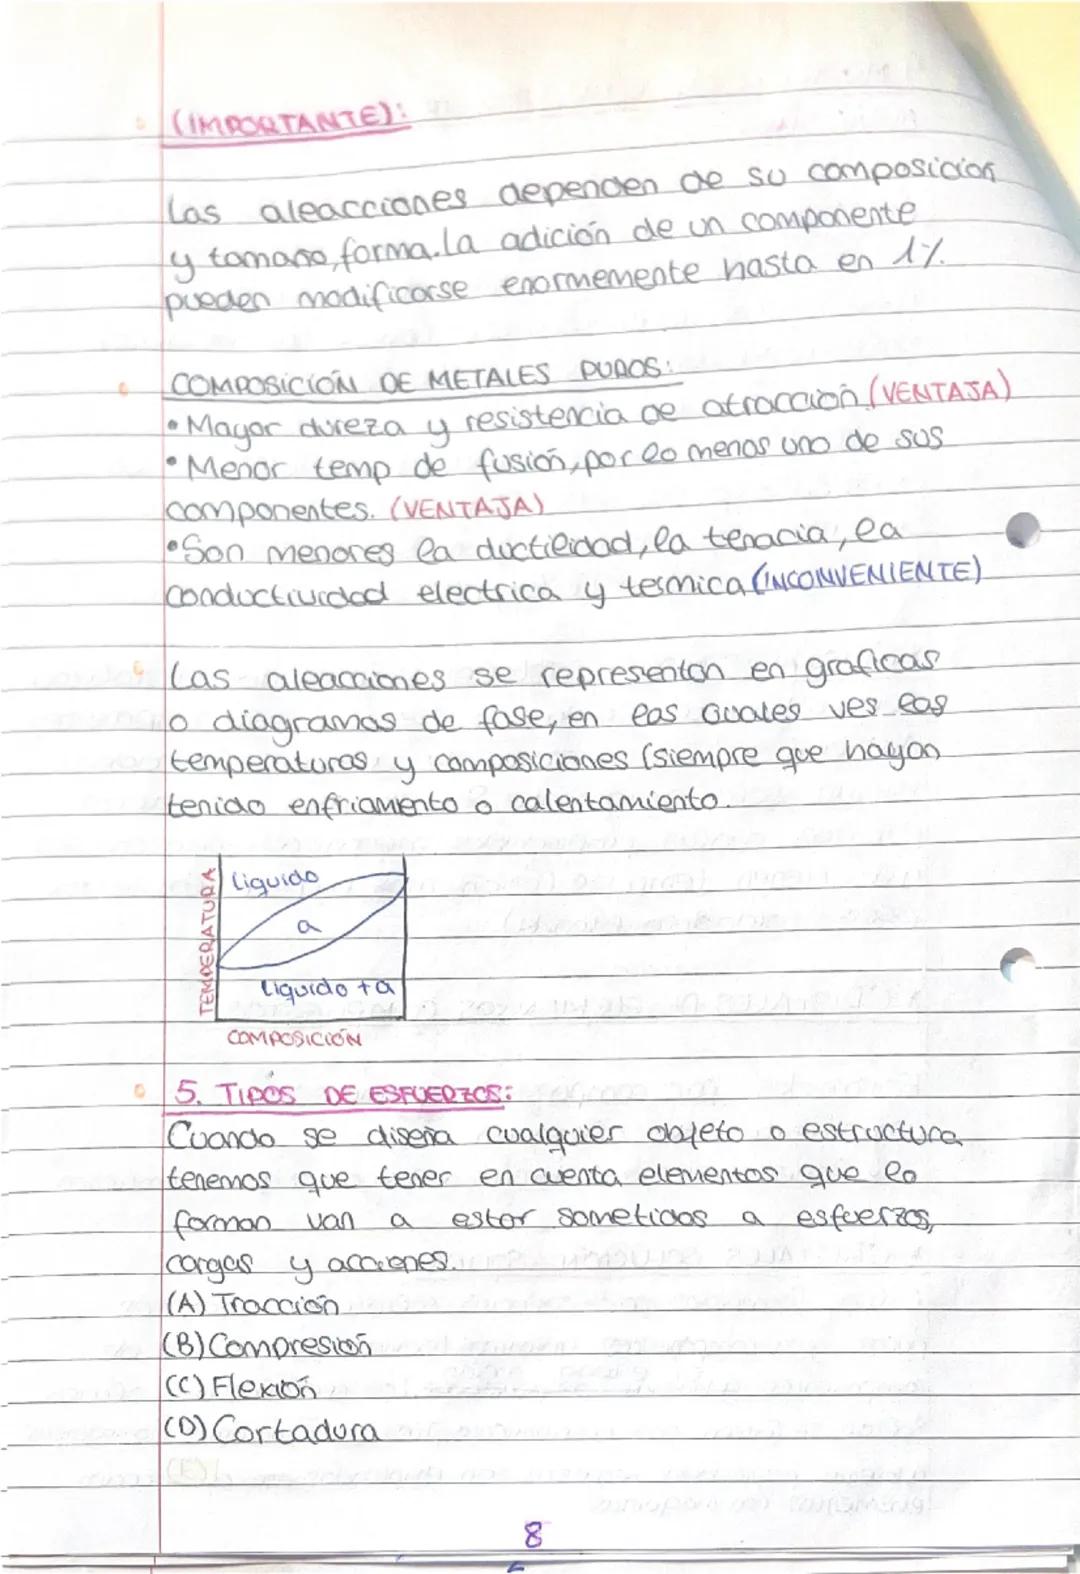 (IMPORTANTE):
Las aleacciones dependen de su composicion
y tamaño, forma. La adición de un componente
pueden modificarse enormemente hasta en 1%.
COMPOSICIÓN DE METALES PUROS:
• Mayor dureza y resistencia de atracción. (VENTAJA)
• Menor temp de fusión, por lo menos uno de sus
componentes. (VENTAJA)
• Son menores la ductilidad, la tenacia, la
conductividad electrica y termica (INCONVENIENTE)
Las aleacciones se representan en graficas
o diagramas de fase, en las cuales ves las
temperaturas y composiciones (siempre que hayan
tenido enfriamento o calentamiento.
TEMPERATURA
Liquido
a
Liquido + a
COMPOSICIÓN
5. TIPOS DE ESFUERZOS:
Cuando se diseña cualquier objeto o estructura
tenemos que tener en cuenta elementos que lo
forman van a estar sometidos a esfuerzos,
cargas y acciones.
(A) Tracción
(B) Compresión
(C) Flexión
(D) Cortadura
8